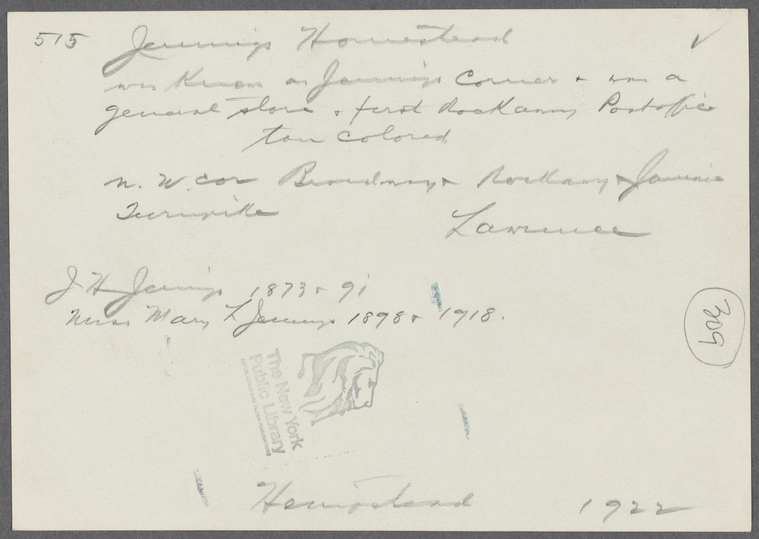 515 Jennings Homestead ✓
was Known as Jennings Corner + was a
general store + first Rockaway Postoffice
tan colored
N. W. cor Broadway + Rockaway + Jamaica
Turnpike Lawrence
J H Jennings 1873 + 91
Miss Mary L Jennings 1898 + 1918.
309
The New York
Public Library
Hempstead 1922